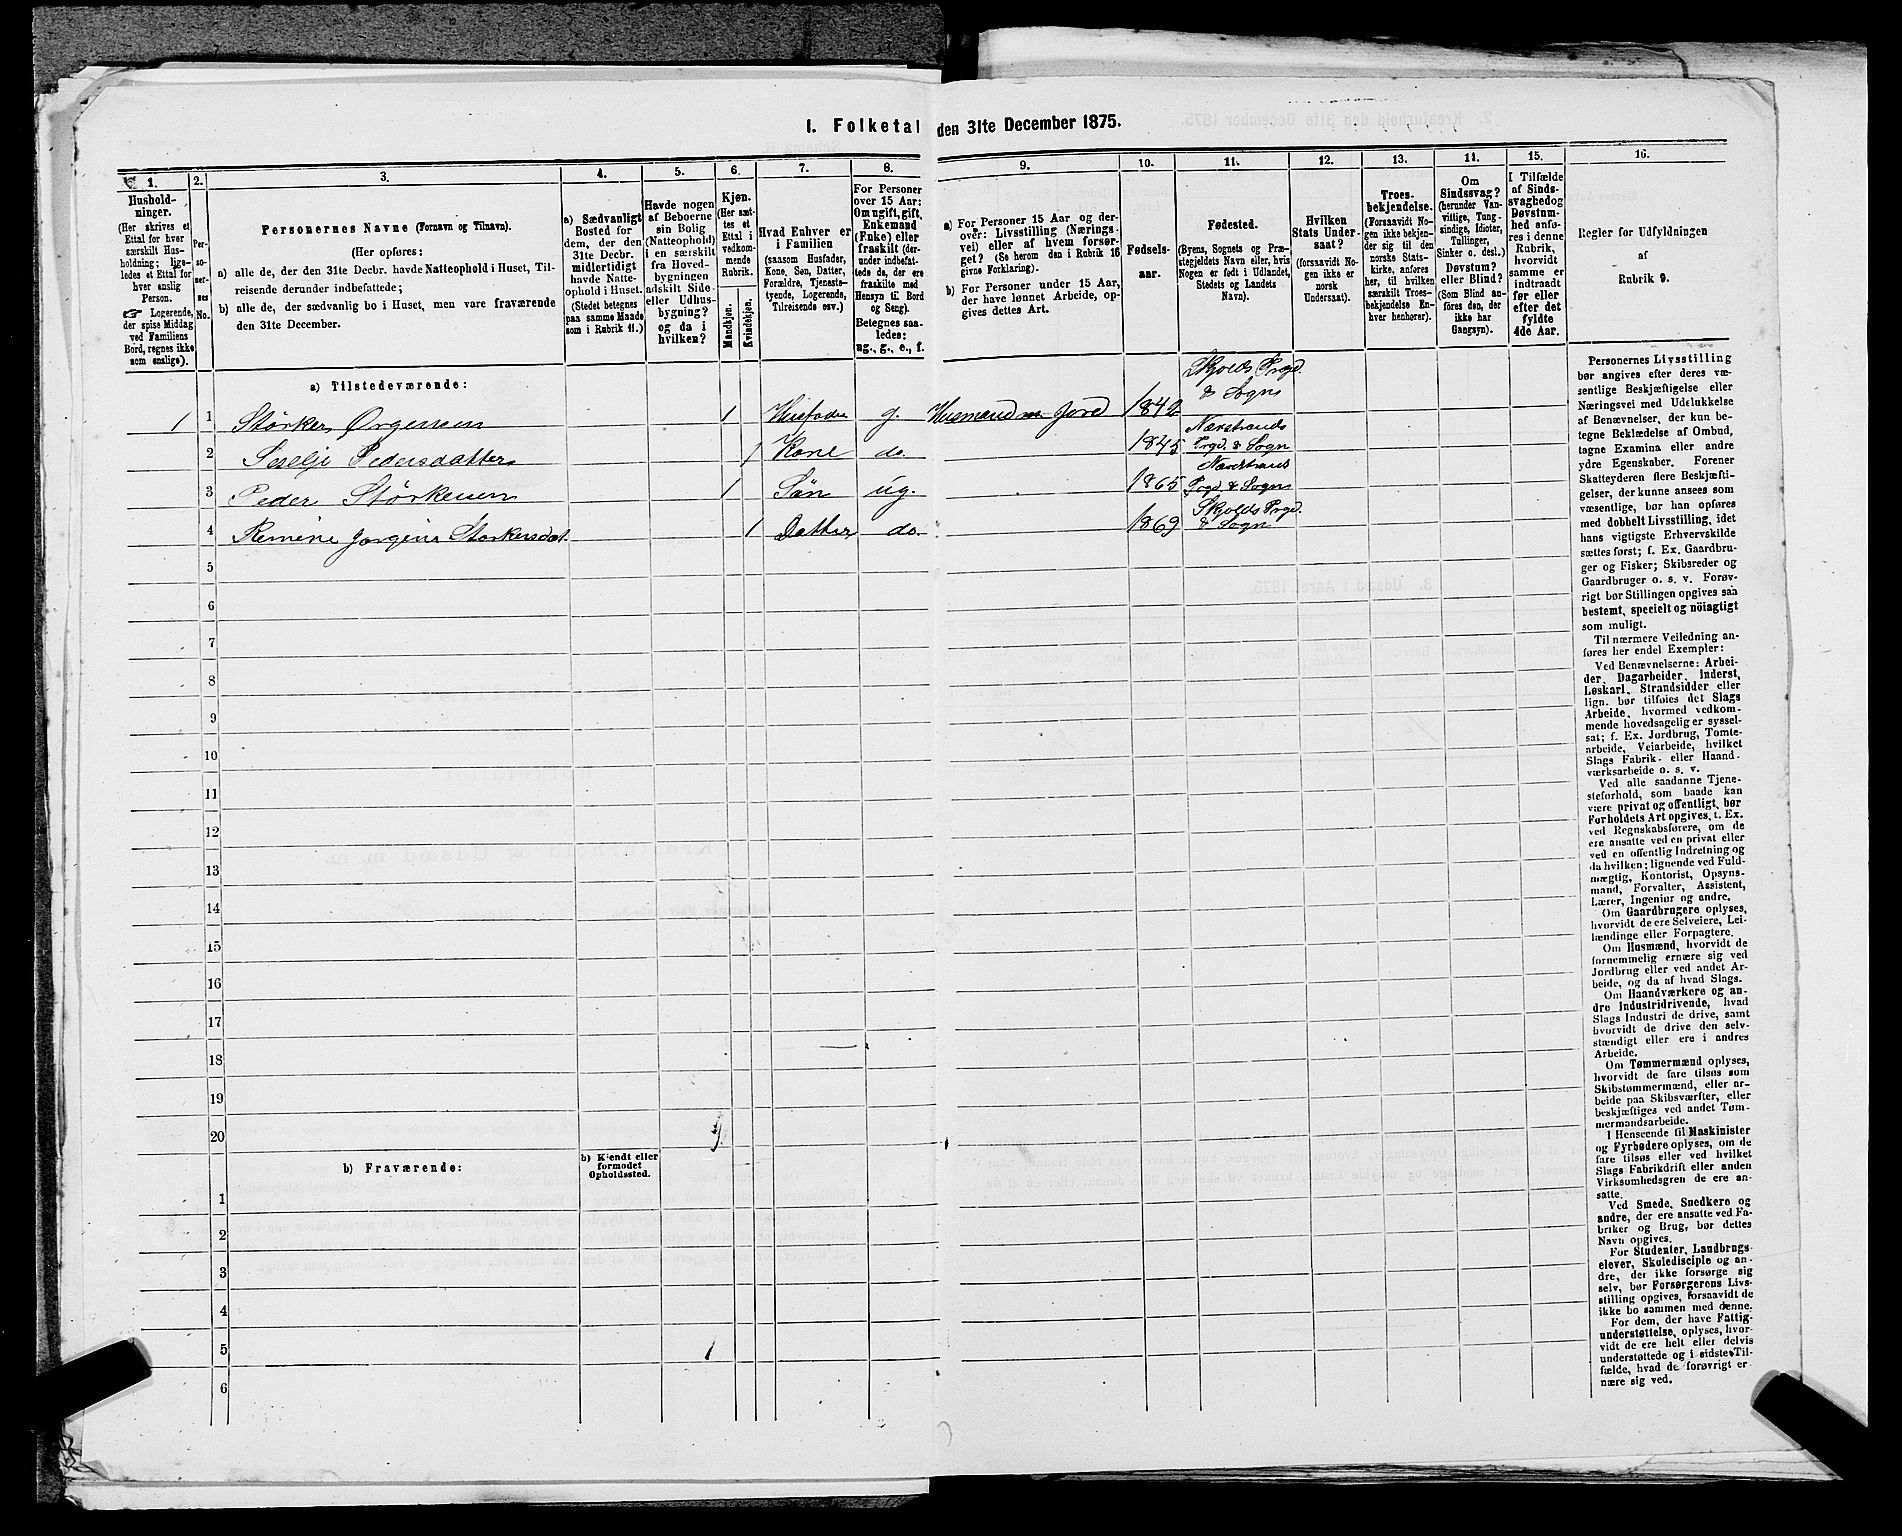 1. Folketal den 31te December 1875.
1.
Hushold-
ninger.
(Her skrives et
Ettal for hver
særskilt Hus-
holdning; lige-
ledes et Ettal for
hver enslig
Person.
☞ Logerende,
der spise Middag
ved Familiens
Bord, regnes ikke
som enslige).
2.
Per-
so-
ner-
nes
No.
3.
Personernes Navne (Fornavn og Tilnavn).
(Her opføres:
a) alle de, der den 31te Decbr. havde Natteophold i Huset, Til-
reisende derunder indbefattede;
b) alle de, der sædvanlig bo i Huset, men vare fraværende
den 31te December.
4.
a) Sædvanligt
Bosted for
dem, der den
31te Decbr.
midlertidigt
havde Natte-
ophold i Huset.
(Stedet betegnes
paa samme Maade
som i Rubrik 11.)
5.
Havde nogen
af Beboerne
sin Bolig
(Natteophold)
i en særskilt
fra Hoved-
bygningen
adskilt Side-
eller Udhus-
bygning?
og da i
hvilken?
6.
Kjøn.
(Her sæt-
tes et
Ettal i
vedkom-
mende
Rubrik.
Mandkjøn.
Kvindekjøn.
7.
Hvad Enhver er
i Familien
(saasom Husfader,
Kone, Søn, Datter,
Forældre, Tjeneste-
tyende, Logerende,
Tilreisende osv.)
8.
For Personer
over 15 Aar:
Om ugift, gift,
Enkemand
(Enke) eller
fraskilt (der-
under indbefat-
tede de, der ere
fraskilte med
Hensyn til Bord
og Seng).
Betegnes saa-
ledes:
ug., g., e., f.
9.
a) For Personer 15 Aar og der-
over: Livsstilling (Nærings-
vei) eller af hvem forsør-
get? (Se herom den i Rubrik 16
givne Forklaring).
b) For Personer under 15 Aar,
der have lønnet Arbeide, op-
gives dettes Art.
10.
Fødsels-
aar.
11.
Fødested.
(Byens, Sognets og Præ-
stegjeldets Navn eller, hvis
Nogen er født i Udlandet,
Stedets og Landets
Navn).
12.
Hvilken
Stats Under-
saat?
(forsaavidt No-
gen ikke er
norsk
Undersaat).
13.
Troes-
bekjendelse.
(Forsaavidt No-
gen ikke bekjen-
der sig til den
norske Stats-
kirke, anføres
her, til hvilken
særskilt Troes-
bekjendelse En-
hver henhører).
14.
Om
Sindssvag?
(herunder Van-
vittige, Tung-
sindige, Idioter,
Tullinger,
Sinker o. desl.)
Døvstum?
eller Blind?
(Som Blind an-
føres den, der
ikke har
Gangsyn).
15.
I Tilfælde
af Sinds-
svaghed og
Døvstum-
hed anfø-
res i denne
Rubrik,
hvorvidt
samme er
indtraadt
før eller
efter det
fyldte
4de Aar.
16.
Regler for Udfyldningen
af
Rubrik 9.
a) Tilstedeværende:
1 1 Størker Ørgensen 1 Husfader g. Husmand m Jord 1842 Skjolds Prgd. & Sogn
2 Serelje Pedersdatter 1 Kone do. 1845 Nærstrands Prgd. & Sogn
3 Peder Størkersen 1 Søn ug. 1865 Nærstrans Prgd & Sogns
4 Remine Jorgine Størkersdat. 1 Datter do. 1869 Skjolds Prgd. & Sogn
5
6
7
8
9
10
11
12
13
14
15
16
17
18
19
20
b) Fraværende:
b) Kjendt eller
formodet
Opholdssted.
1
2
3
4
5
6
Personernes Livsstilling
bør angives efter deres væ-
sentlige Beskjæftigelse eller
Næringsvei med Udelukkelse
af Benævnelser, der kun be-
tegne Beklædelse af Ombud,
tagne Examina eller andre
ydre Egenskaber. Forener
Skatteyderen flere Beskjæfti-
gelser, der kunne ansees som
væsentlige, bør han opføres
med dobbelt Livsstilling, idet
hans vigtigste Erhvervskilde
sættes først; f. Ex. Gaardbru-
ger og Fisker; Skibsreder og
Gaardbruger o. s. v. Forøv-
rigt bør Stillingen opgives saa
bestemt, specielt og nöiagtigt
som muligt.
Til nærmere Veiledning an-
føres her endel Exempler:
Ved Benævnelserne: Arbei-
der, Dagarbeider, Inderst,
Løskarl, Strandsidder eller
lign. bør tilføies det Slags
Arbeide, hvormed vedkom-
mende hovedsagelig er syssel-
sat; f. Ex. Jordbrug, Tomte-
arbeide, Veiarbeide, hvilket
Slags Fabrik- eller Haand-
værksarbeide o. s. v.
Ved alle saadanne Tjene-
steforhold, som baade kan
være privat og offentligt, bør
Forholdets Art opgives, t. Ex.
ved Regnskabsførere, om de
ere ansatte ved en privat eller
ved en offentlig Indretning og
da hvilken; lignende ved Fuld-
mægtig, Kontorist, Opsyns-
mand, Forvalter, Assistent,
Lærer, Ingeniør og andre.
Om Gaardbrugere oplyses,
hvorvidt de ere Selveiere, Lei-
lændinge eller Forpagtere.
Om Husmænd, hvorvidt de
fornemmelig ernære sig ved
Jordbrug eller ved andet Ar-
beide, og da af hvad Slags.
Om Haandværkere og an-
dre Industridrivende, hvad
Slags Industri de drive, samt
hvorvidt de drive den selv-
stændigt eller ere i andres
Arbeide.
Om Tømmermænd oplyses,
hvorvidt de fare tilsøs som
Skibstømmermænd, eller ar-
beide paa Skibsværfter, eller
beskjæftiges ved andet Tøm-
mermandsarbeide.
I Henseende til Maskinister
og Fyrbødere oplyses, om de
fare tilsøs eller ved hvilket
Slags Fabrikdrift eller anden
Virksomhedsgren de ere an-
satte.
Ved Smede, Snedkere og
andre, der ere ansatte ved Fa-
briker og Brug, bør dettes
Navn opgives.
For Studenter, Landbrugs-
elever, Skoledisciple og an-
dre, der ikke forsørge sig
selv, bør Forsørgerens Livs-
stilling opgives, forsaavidt de
ikke bo sammen med denne.
For dem, der have Fattig-
understøttelse, oplyses, hvor-
vidt de ere helt eller delvis
understøttede og i sidste Til-
fælde, hvad de forøvrigt er-
nære sig ved.